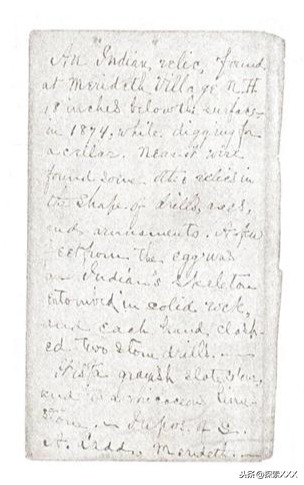 An "Indian" relic, found
at Meredeth Village N.H.
18 inches below the surface
in 1874. while digging for
a cellar. Near it were
found some other relics in
the shape of drills, axes,
and arnaments. A few
feet from the egg was
an Indian's skeleton
entombed in solid rock,
and each hand, clasp-
ed two stone drills. —
grayish slate
and micaceous lime-
stone. — Depos. of
Ladd, Meredeth. —
头条@探索XXX